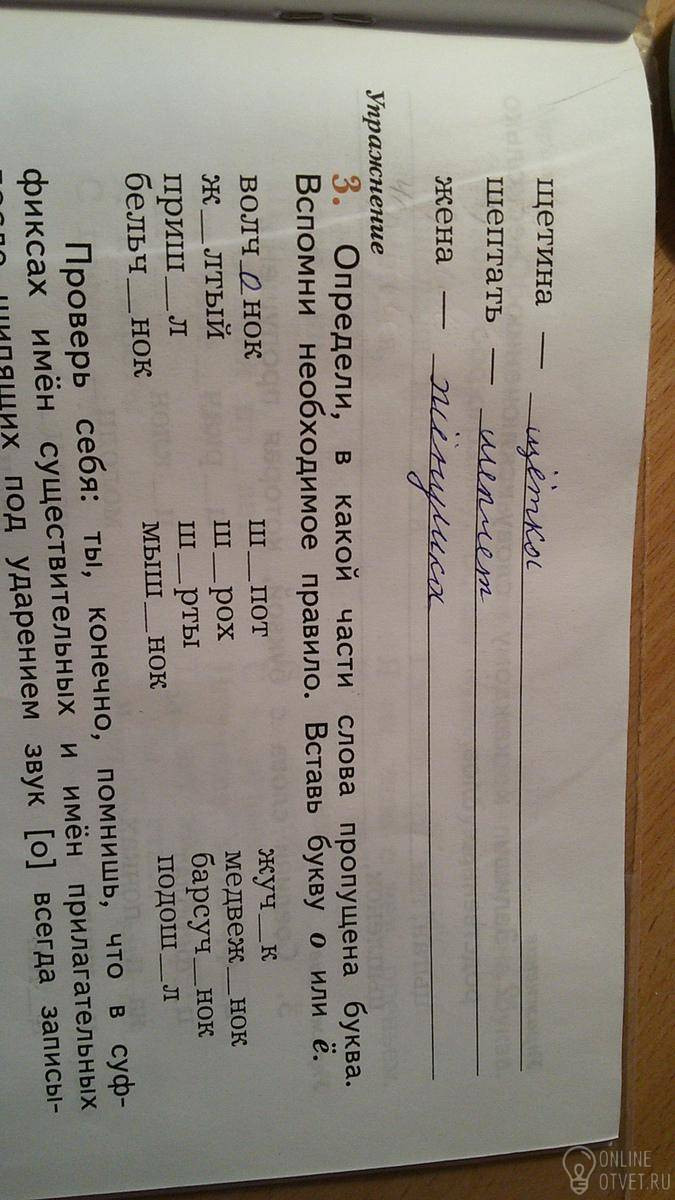 щетина — щётка
шептать — шепчет
жена — жёнушка
Упражнение
3. Определи, в какой части слова пропущена буква.
Вспомни необходимое правило. Вставь букву о или ё.
волч_о_нок ш__пот жуч__к
ж__лтый ш__рох медвеж__нок
приш__л ш__рты барсуч__нок
бельч__нок мыш__нок подош__л
Проверь себя: ты, конечно, помнишь, что в суф-
фиксах имён существительных и имён прилагательных
после шипящих под ударением звук [о] всегда записы-
ONLINE
OTVET.RU